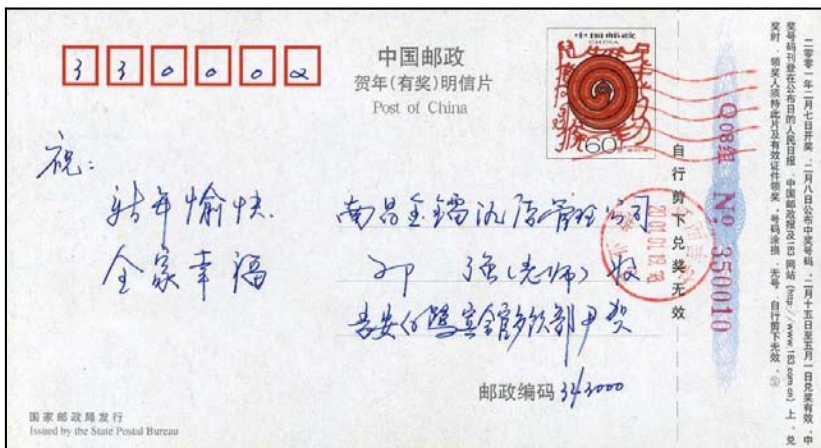 330000
中国邮政
贺年(有奖)明信片
Post of China
中国邮政
CHINA
60
祝:
新年愉快.
全家幸福
南昌 酒店管理公司
邓 强(老师) 收
吉安白鹭宾馆 部尹
邮政编码 343000
国家邮政局发行
Issued by the State Postal Bureau
自行剪下兑奖无效
Q08组 No 350010
二零零一年二月七日开奖,二月八日公布中奖号码,二月十五日至五月一日兑奖有效,中
奖号码刊登在公布日的人民日报、中国邮政报及183网站(http://www.183.com.cn)上,兑
奖时,领奖人须持此片及有效证件领奖,号码涂损、无号、自行剪下无效。
2001.01.12